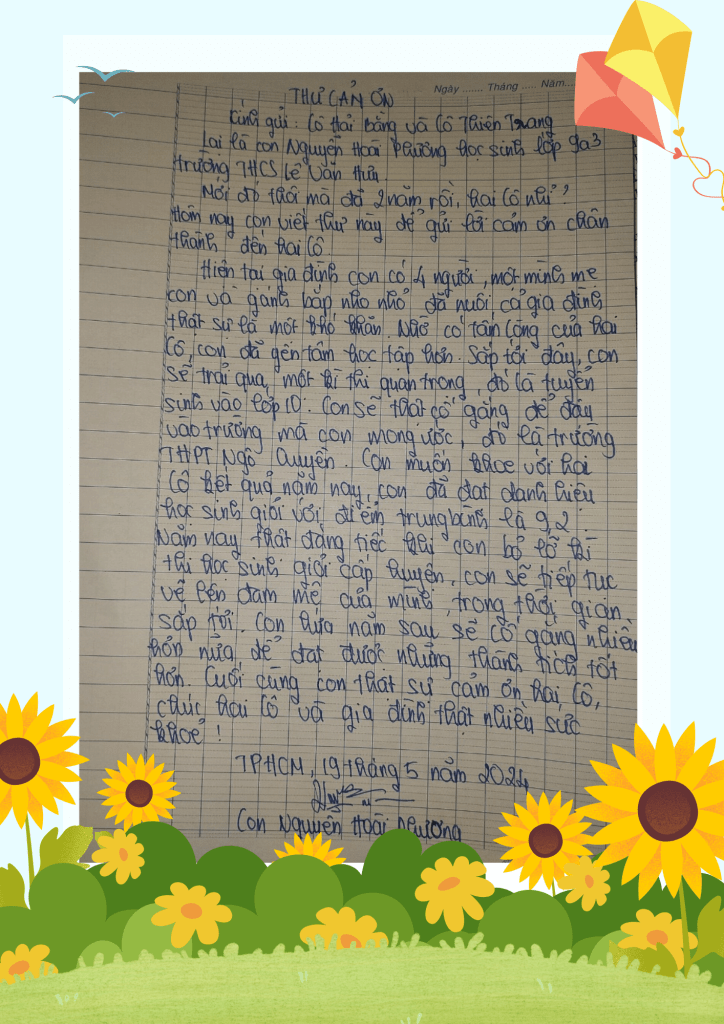 Ngày ....... Tháng ..... Năm...
THƯ CẢM ƠN
Kính gửi : Cô Hải Bằng và Cô Thiên Trang
Lại là con Nguyễn Hoài Phương học sinh lớp 9a3
trường THCS Lê Văn Hưu.
Mới đó thôi mà đã 2 năm rồi, hai Cô nhỉ ?
Hôm nay con viết thư này để gửi lời cảm ơn chân
thành đến hai Cô
Hiện tại gia đình con có 4 người, một mình mẹ
con và gánh bắp nho nhỏ đã nuôi cả gia đình
thật sự là một khó khăn. Nhờ có tấm lòng của hai
Cô, con đã yên tâm học tập hơn. Sắp tới đây, con
sẽ trải qua một kì thi quan trọng, đó là tuyển
sinh vào lớp 10. Con sẽ thật cố gắng để đậu
vào trường mà con mong ước, đó là trường
THPT Ngô Quyền. Con muốn khoe với hai
Cô kết quả năm nay, con đã đạt danh hiệu
học sinh giỏi với điểm trung bình là 9,2 .
Năm nay thật đáng tiếc khi con bỏ lỡ kì
thi học sinh giỏi cấp huyện, con sẽ tiếp tục
vẽ lên đam mê của mình, trong thời gian
sắp tới. Con hứa năm sau sẽ cố gắng nhiều
hơn nữa để đạt được những thành tích tốt
hơn. Cuối cùng con thật sự cảm ơn hai Cô,
chúc hai Cô và gia đình thật nhiều sức
khoẻ !
TPHCM, 19 tháng 5 năm 2024
Con Nguyễn Hoài Phương